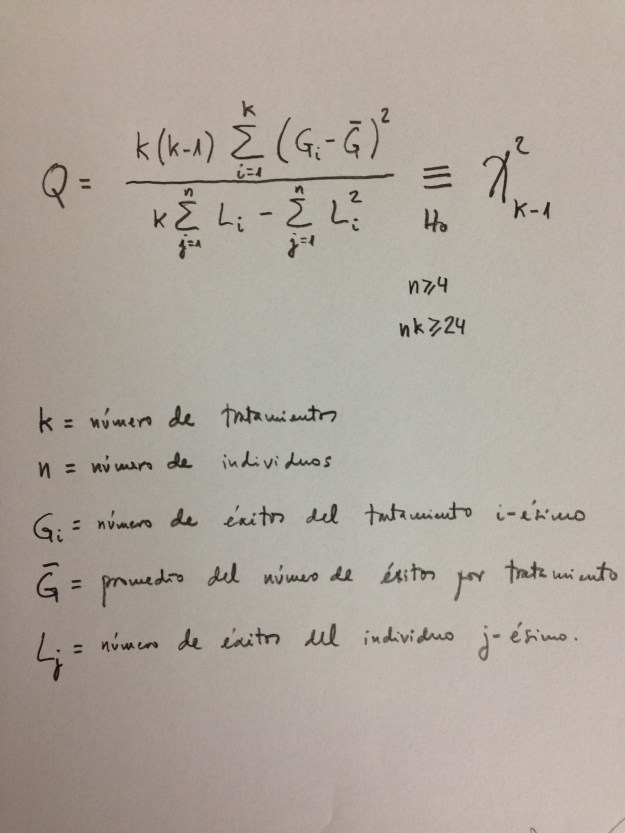 Q = k(k-1) Σ_{i=1}^{k} (G_i - Ḡ)² / (k Σ_{j=1}^{n} L_i - Σ_{j=1}^{n} L_i²) ≡_{H₀} χ²_{k-1}
n ⩾ 4
nk ⩾ 24
k = número de tratamientos
n = número de individuos
G_i = número de éxitos del tratamiento i-ésimo
Ḡ = promedio del número de éxitos por tratamiento
L_j = número de éxitos del individuo j-ésimo.